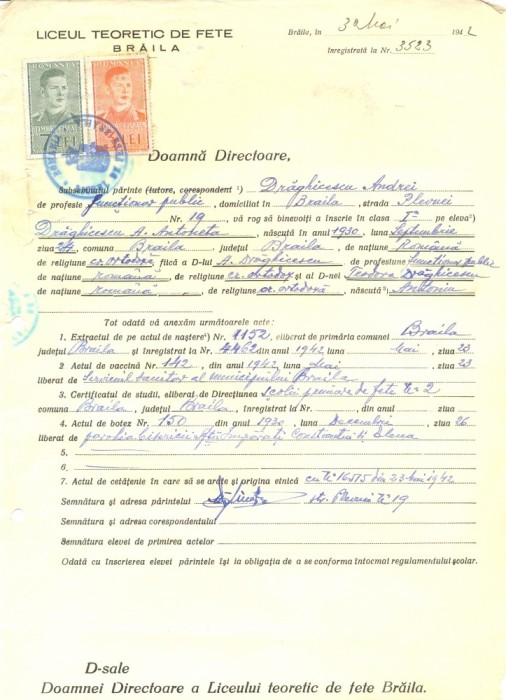 LICEUL TEORETIC DE FETE
BRĂILA
Brăila, în 30 Mai 1942
înregistrată la Nr. 3523
ROMÂNIA
LEI
Doamnă Directoare,
Subsemnatul părinte (tutore, corespondent ¹) Drăghicescu Andrei
de profesie funcționar public, domiciliat în Braila, strada Plevnei
Nr. 19 vă rog să binevoiți a înscrie în clasa I-a pe eleva
Drăghicescu A. Antoneta, născută în anul 1930. luna Septembrie
ziua comuna Braila județul Braila, de națiune Română
de religiune cr. ortodoxă fiică a D-lui A. Drăghicescu de profesiune funcționar public
de națiune română, de religiune cr. ortodox și al D-nei Teodora Drăghicescu
de națiune română, de religiune cr. ortodoxă, născută Antoniu
Tot odată vă anexăm următoarele acte:
1. Extractul de pe actul de naștere) Nr. 1152, eliberat de primăria comunei Braila
județul Braila și înregistrat la Nr. 4462 din anul 1942 luna Mai, ziua 23
2 Actul de vaccină Nr. 142, din anul 1942, luna Mai ziua 23
liberat de Serviciul sanitar al municipiului Braila
3. Certificatul de studii, eliberat de Direcțiunea Școlii primare de fete No 2
comuna Braila, județul Braila, înregistrat la Nr. din anul ziua
4. Actul de botez Nr. 150 din anul 1930, luna Decembrie, ziua 26
liberat de parohia bisericii Sfții Împărați Constantin și Elena
5.
6
7. Actul de cetățenie în care să se arate și origina etnică cu No 16575 din 23 Mai 1942
Semnătura și adresa părintelui str. Plevnei No 19
Semnătura și adresa corespondentului
Semnătura elevei de primirea actelor
Odată cu înscrierea elevei părintele își ia obligația de a se conforma întocmai regulamentului școlar.
D-sale
Doamnei Directoare a Liceului teoretic de fete Brăila.